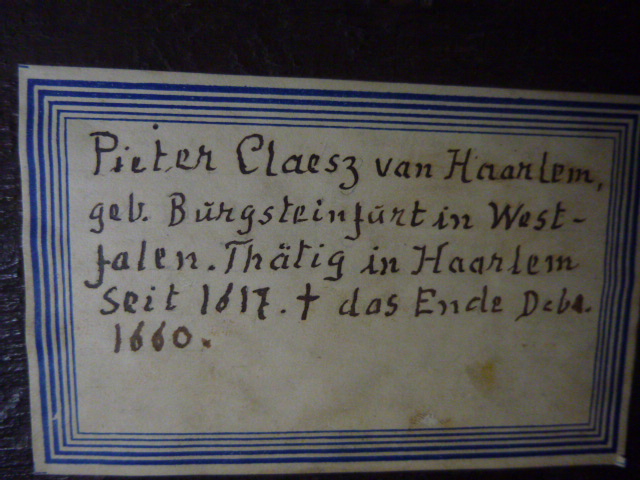 Pieter Claesz van Haarlem,
geb. Bürgsteinfürt in West-
falen. Thätig in Haarlem
seit 1617. † das Ende Debr.
1660.